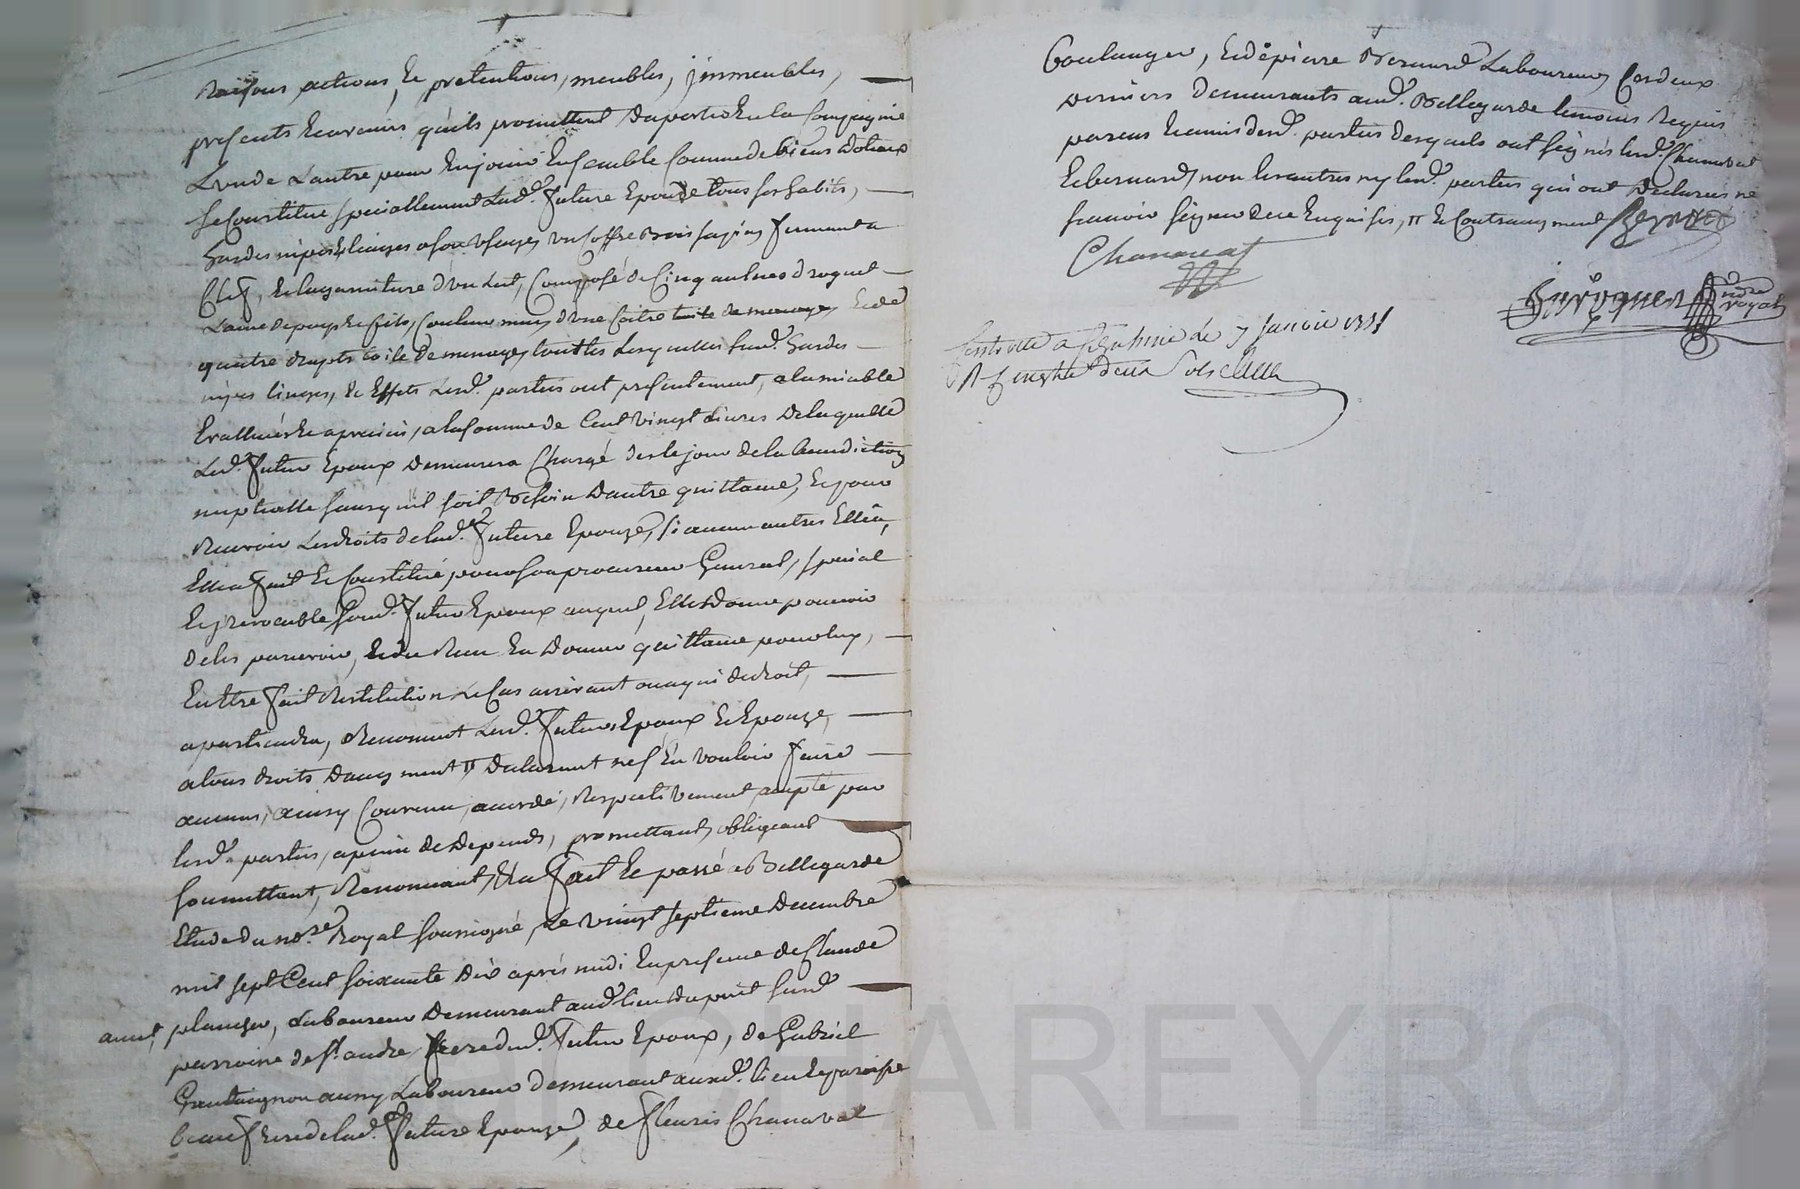 Raisons actions, et pretentions, meubles, jmmeubles,
presents et avenirs qu'ils promettent D'aporter En la Compagnie
L'un de L'autre pour En jouir Ensemble Comme de biens Dotaux
se Constitue specialement Lad.e future Epouze tous ses habits,
hardes nipes et linges a son Usage, un Coffre Bois sapin fermant a
Clef, et la garniture d'un Lit, Composé de Cinq aulnes droguet
Laine de pays et fil, Couleur une Coitre toile de menage, Et de
quatre draps toile de menage, toutes Lesquelles susd. hardes
nipes linges, et Effets Lesd. parties ont presentement, a l'amiable
Evallués et apreciés, a la somme de Cent vingt Livres De laquelle
Led. futur Epoux Demeurera Chargé des le jour de la benediction
nuptialle sans qu'il soit Besoin D'autre quittance, et pour
Recevoir Les droits de lad. future Epouze, si aucuns autres Elle a,
Elle a fait et Constitué pour son procureur General, special
et jrrevocable sond. futur Epoux auquel, Elle Donne pouvoir
De les percevoir, et du Recu En Donner quittance pour luy,
En Etre fait Restitution Le Cas arrivant ou a qui de droit,
apartiendra, Renoncent Lesd. futurs Epoux et Epouze,
a tous droits D'augment Declarant ne s'En vouloir faire
aucuns, ainsy Convenu, accordé, Respectivement, accepté par
lesd. parties, a peine de Depends, promettant, obligeant
soumettant, Renonceant, &a fait et passé a Bellegarde
Etude du no.re Royal soussigné, Le vingt septieme Decembre
mil sept Cent soixante Dix aprés midi En presence de Claude
planchet, Laboureur Demeurant aud. lieu Dupuit susd.
parroisse de St. andre, frere dud. futur Epoux, de Gabriel
aussy Laboureur Demeurant auxd. lieu et paroisse
beaufrere de lad. future Epouze, de fleuris Chanavat
Boulanger, Et de pierre Bernard Laboureur, Ces deux
Derniers Demeurants aud. Bellegarde temoins Requis
parens et amis desd. parties Desquels ont signés lesd. Chanavat
et bernard, non les autres ny lesd. parties qui ont Declarées ne
scavoir signer De ce Enquises, Bernard
Chanavat
no.re
royal
Controllé a le 7 Janvier 1771